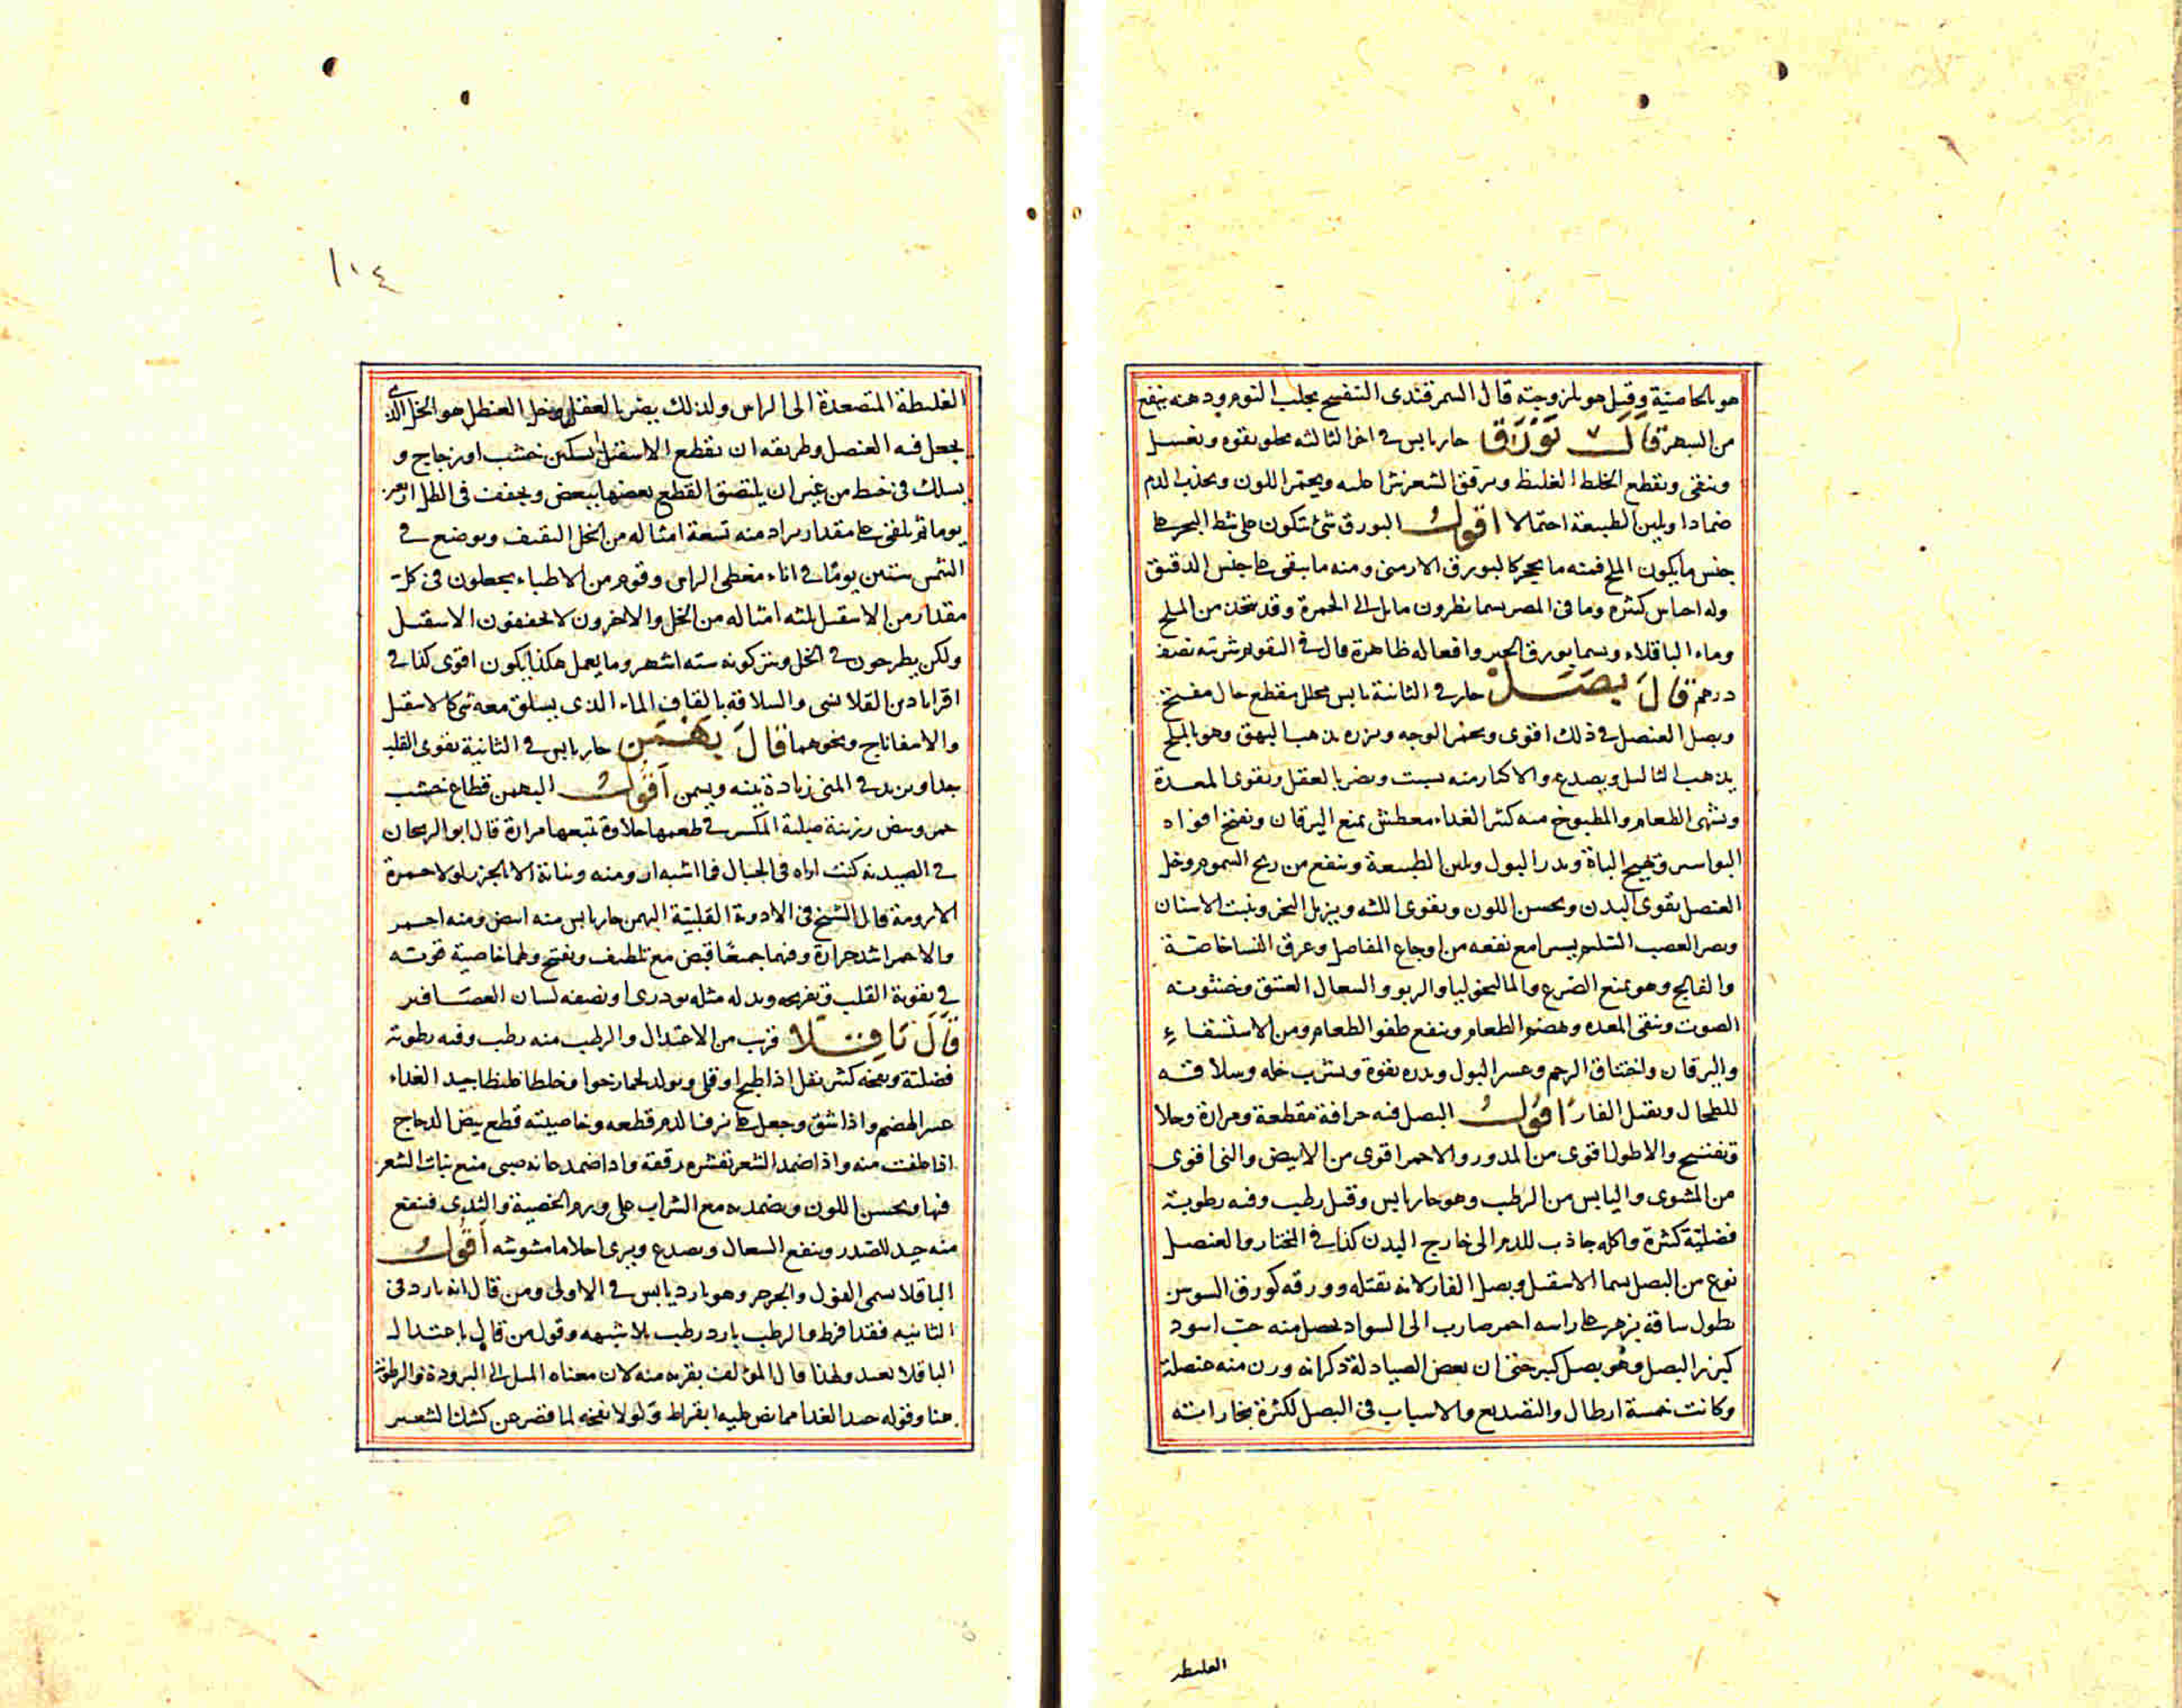 هو بالخاصية وقيل هو لزوجته قال السمرقندي البنفسج يجلب النوم ودهنه ينفع
من السهر قال بورق حار يابس في اخر الثالثة يجلو بقوه ويغسل
وينقي ويقطع الخلط الغليظ ويرقق الشعر نثرا عليه ويحمر اللون ويجذب الدم
ضمادا ويلين الطبيعة احتمالا اقول البورق شئ يتكون على شط البحر على
جنس ما يكون الملح فمنه ما يحجر كالبورق الارمني ومنه ما يبقى على جنس الدقيق
وله اجناس كثيره وما في المصر يسما نطرون مايل الى الحمرة وقد يتخذ من الملح
وماء الباقلاء ويسما بورق الخبز وافعاله ظاهرة قال في التقويم شربته نصف
درهم قال بصل حار في الثانية يابس محلل مقطع جال مفتح
وبصل العنصل في ذلك اقوى ويحمر الوجه وبزره يذهب البهق وهو بالملح
يذهب الثاليل ويصدع والاكثار منه يسبت ويضر بالعقل ويقوى المعدة
ويشهى الطعام والمطبوخ منه كثير الغداء معطش يمنع اليرقان ويفتح افواه
البواسير ويهيج الباة ويدر البول ويلين الطبيعة وينفع من ريح السموم وخل
العنصل يقوى البدن ويحسن اللون ويقوى اللثه ويزيل البخر ويثبت الاسنان
ويضر العصب السليم يسيرا مع نفعه من اوجاع المفاصل وعرق النسا خاصة
والفالج وهو يمنع الصرع والماليخوليا والربو والسعال العتيق وخشونه
الصوت وينقى المعده ويهضم الطعام وينفع طفو الطعام ومن الاستسقاء
واليرقان واختناق الرحم وعسر البول ويدره بقوة ويشرب خله وسلاقته
للطحال ويقتل الفار اقول البصل فيه حرافة مقطعة ومرارة وجلا
وتفتيح والاطول اقوى من المدور والاحمر اقوى من الابيض والني اقوى
من المشوى واليابس من الرطب وهو حار يابس وقيل رطب وفيه رطوبة
فضلية كثيرة واكله جاذب للدم الى خارج البدن كذا في المختار والعنصل
نوع من البصل يسما الاسقيل وبصل الفار لانه يقتله وورقه كورق السوسن
يطول ساقه يزهر على راسه احمر ضارب الى السواد يحصل منه حب اسود
كبزر البصل وهو بصل كبير حتى ان بعض الصيادلة ذكر انه وزن منه عنصلة
وكانت خمسة ارطال والتصديع والاسبات في البصل لكثرة بخاراته
الغليظة
١١٤
الغليظة المتصعدة الى الراس ولذلك يضر بالعقل وخل العنصل هو الخل الذي
يجعل فيه العنصل وطريقه ان يقطع الاسقيل بسكين خشب او زجاج و
يسلك في خيط من غير ان يلتصق القطع بعضها ببعض ويجفف في الظل اربعين
يوما ثم يلقى على مقدار يراد منه تسعة امثاله من الخل الثقيف ويوضع في
الشمس ستين يوما في اناء مغطى الراس وقوم من الاطباء يجعلون في كل
مقدار من الاسقيل ثلثه امثاله من الخل والاخرون لا يجففون الاسقيل
ولكن يطرحون في الخل ويتركونه سته اشهر وما يعمل هكذا يكون اقوى كذا في
اقراباذين القلانسى والسلاقة بالقاف الماء الذي يسلق معه شئ كالاسقيل
والاسفاناج ونحوهما قال بهمن حار يابس في الثانية يقوى القلب
جدا ويزيد في المنى زيادة بينه ويسمن اقول البهمن قطاع خشب
حمر وبيض رزينة صلبة المكسر في طعمها حلاوة تتبعها مرارة قال ابو الريحان
في الصيدنه كنت اراه في الجبال فما اشبه ارومته ونباته الا بالجزر لولا حمرة
الارومة قال الشيخ في الادوية القلبية البهمن حار يابس منه ابيض ومنه احمر
والاحمر اشد حرارة وفيهما جميعا قبض مع تلطيف وتفتح ولهما خاصية قويه
في تقوية القلب وتفريحه وبدله مثله تودري او نصفه لسان العصافير
قال باقلا قريب من الاعتدال والرطب منه رطب وفيه رطوبة
فضلية ونفخه كثير يقل اذا طبخ او قلى ويولد لحما رخوا وخلطا غليظا جيد الغداء
عسر الهضم واذا شق وجعل على نزف الدم قطعه وخاصيته قطع بيض الدجاج
اذا علفت منه واذا ضمد الشعر بقشره رققه واذا ضمد عانه صبى منع نبات الشعر
فيها ويحسن اللون ويضمد به مع الشراب على ورم الخصية والثدى فينفع
منه جيد للصدر وينفع السعال ويصدع ويرى احلاما مشوشه اقول
الباقلا يسمى الفول والجرجر وهو بارد يابس في الاولى ومن قال انه بارد في
الثانيه فقد افرط والرطب بارد رطب بلا شبهه وقول من قال باعتدال
الباقلا بعيد ولهذا قال المؤلف بقربه منه لان معناه الميل الى البرودة والرطوبة
هنا وقوله جيد الغدا مما نص عليه ابقراط ولولا نفخه لما قصر عن كشك الشعير